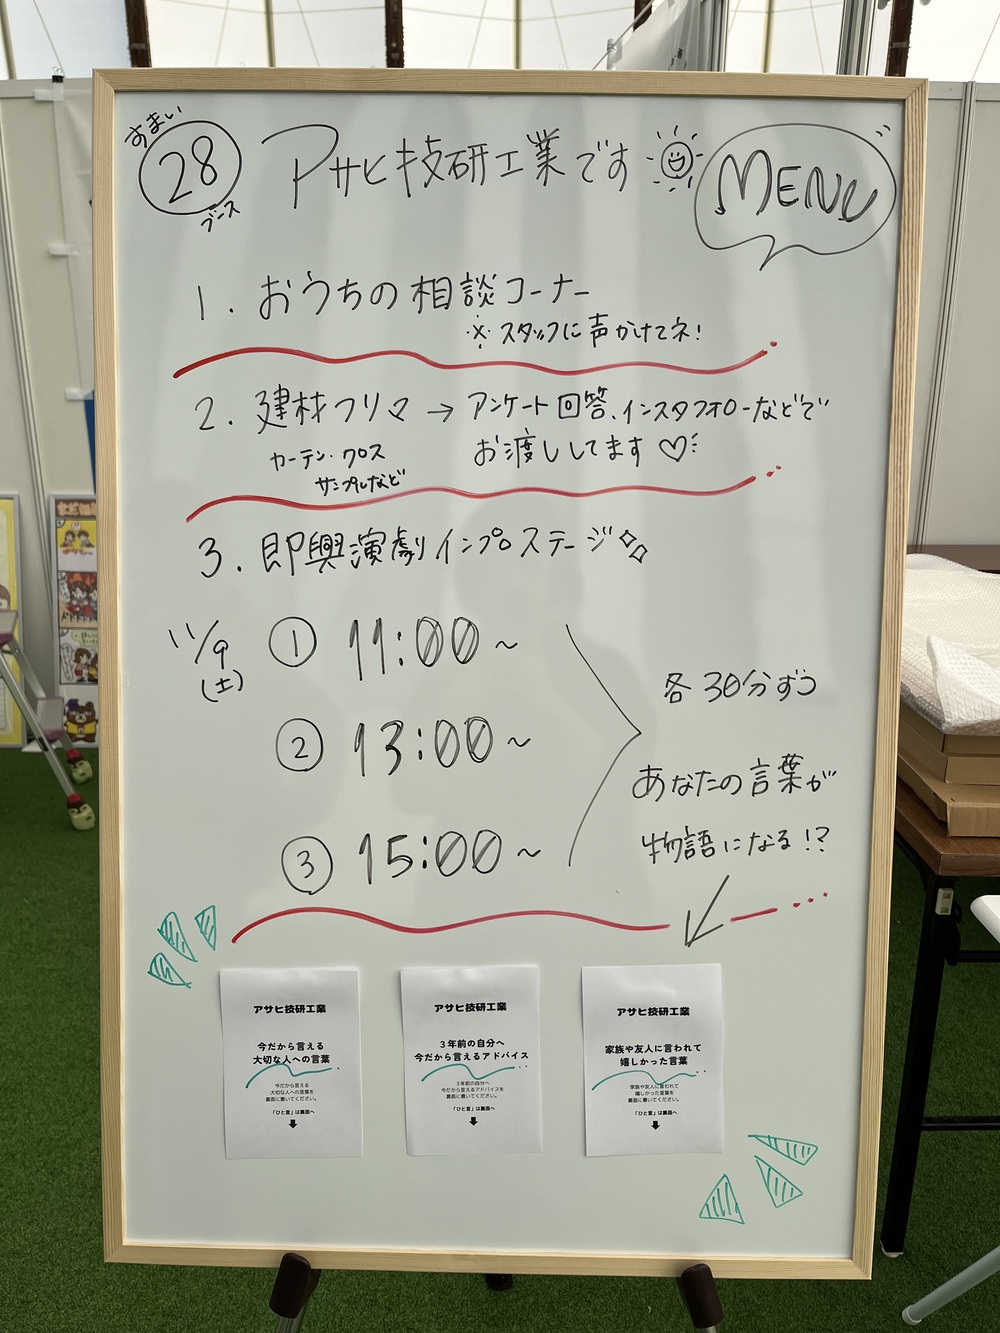 すまい
28
ブース
アサヒ技研工業です
MENU
1. おうちの相談コーナー
※スタッフに声かけてネ!
2. 建材フリマ → アンケート回答、インスタフォローなどで
お渡ししてます♡
カーテン・クロス
サンプルなど
3. 即興演劇インプロステージ
11/9
(土)
① 11:00~
② 13:00~
③ 15:00~
各30分ずつ
あなたの言葉が
物語になる!?
アサヒ技研工業
今だから言える
大切な人への言葉
今だから言える
大切な人への言葉を
裏面に書いてください。
「ひと言」は裏面へ
アサヒ技研工業
3年前の自分へ
今だから言えるアドバイス
3年前の自分へ
今だから言えるアドバイスを
裏面に書いてください。
「ひと言」は裏面へ
アサヒ技研工業
家族や友人に言われて
嬉しかった言葉
家族や友人に言われて
嬉しかった言葉を
裏面に書いてください。
「ひと言」は裏面へ